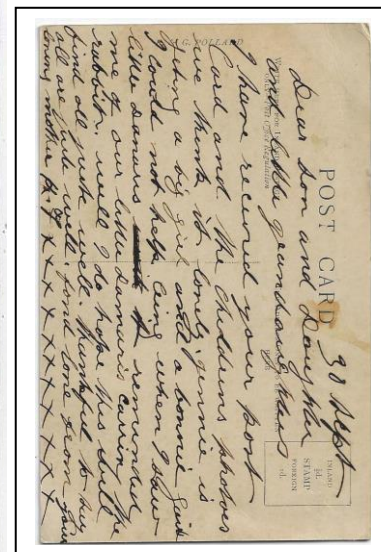 G. POLLARD
POST CARD
INLAND
½d.
STAMP
FOREIGN
1d.
30 Sept
Dear Son and Daughter
and little grandaughters
I have received your post
Card and the Childrens photos
we think it lonely Jennie is
geting a big girl and a bonnie
I could not help Cring when I saw
little Damaris it reminded
me of our little Damaris Carrin the
rabbit. well I do hope this will
find all quite well. thankful to say
all are quite well. fond love from your
loving mother
x x x x x x x x x